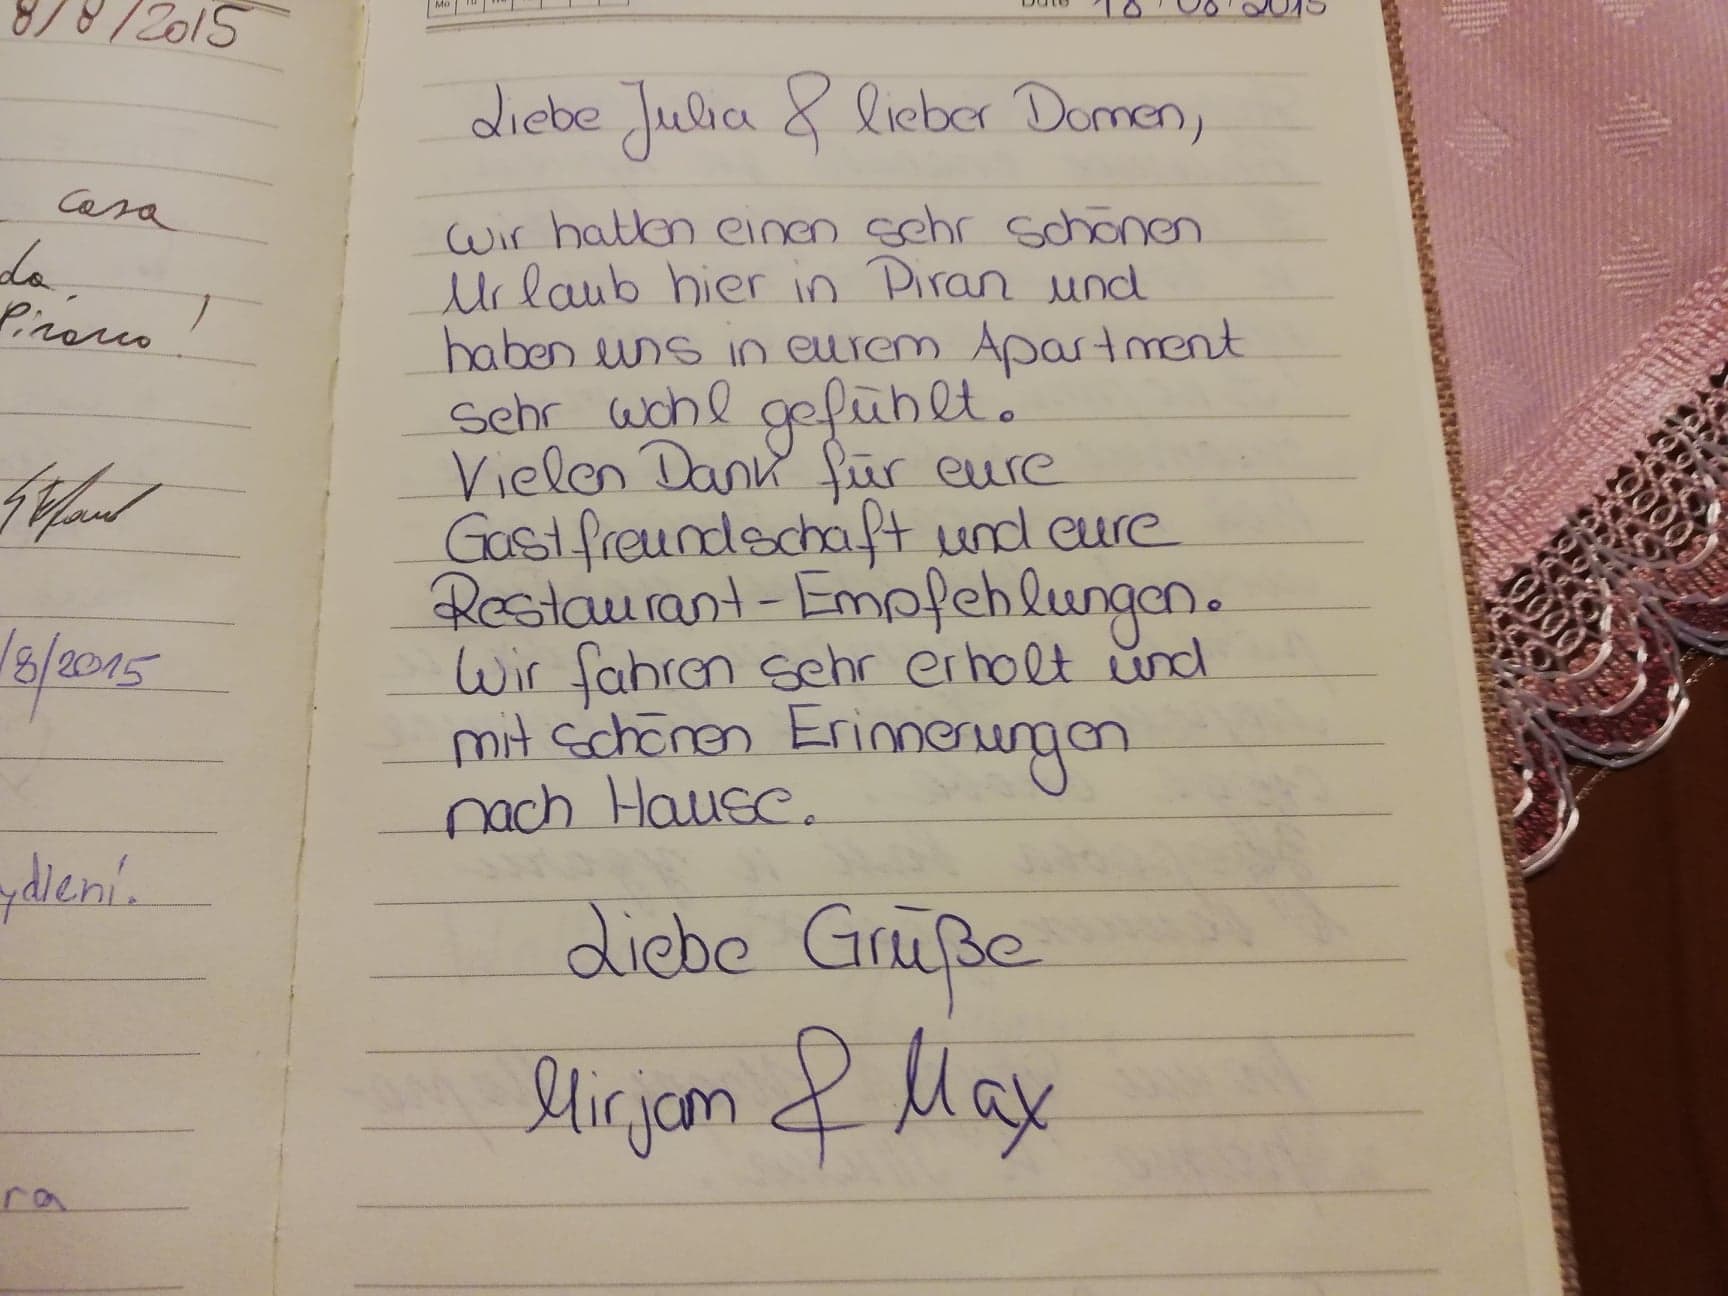 8/8/2015
casa
da
Pirano!
/8/2015
ydlení.
ra
Date 18/08/2015
Liebe Julia & lieber Domen,
wir hatten einen sehr schönen
Urlaub hier in Piran und
haben uns in eurem Apartment
sehr wohl gefühlt.
Vielen Dank für eure
Gastfreundschaft und eure
Restaurant-Empfehlungen.
Wir fahren sehr erholt und
mit schönen Erinnerungen
nach Hause.
Liebe Grüße
Mirjam & Max